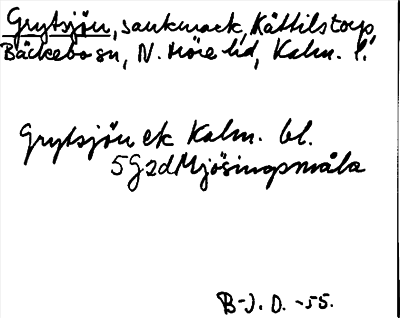 Grytsjön, sankmark, Kättilstorp,
Bäckebo sn, N. Möre hd, Kalm. l.
Grytsjön ek Kalm. bl.
5G2d Mjösingsmåla
B-J. D. -55.